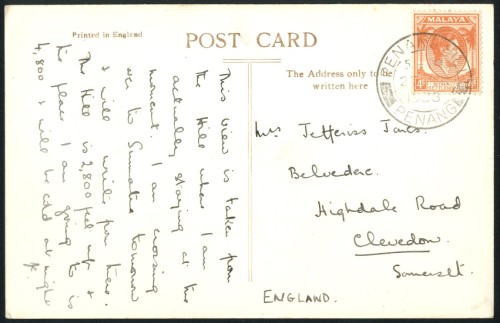 Printed in England
POST CARD
The Address only to
written here
MALAYA
PENANG
PENANG
This view is taken from
the Hill where I am
actually staying at the
moment. I am crossing
over to Sumatra tomorrow
& will write from there.
The Hill is 2,800 feet up &
the place I am going to is
4,800 & will be cold at night
Mrs Jefferiss Jones.
Belvedere.
Highdale Road
Clevedon.
Somerset.
ENGLAND.